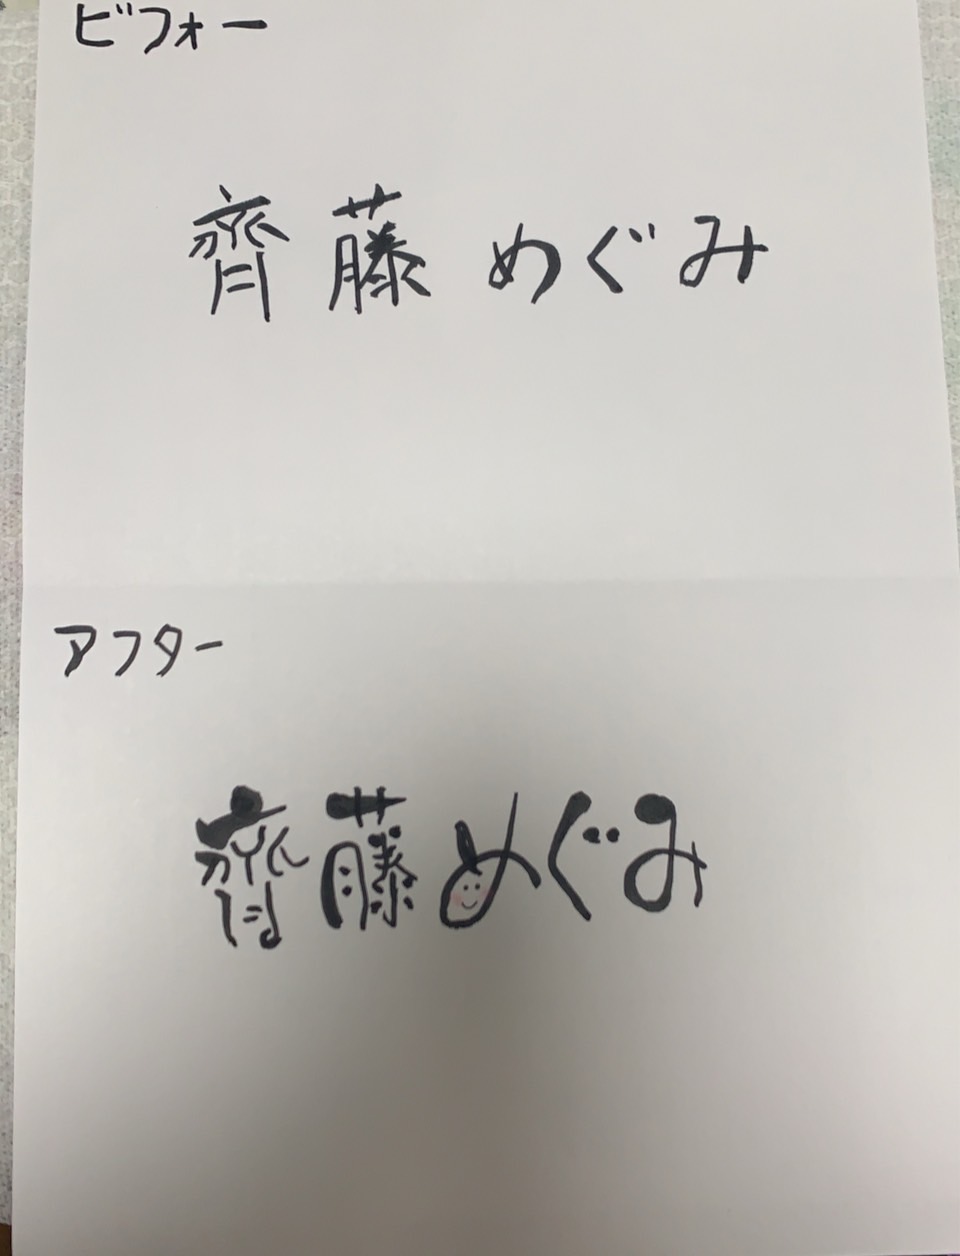 ビフォー
齊藤 めぐみ
アフター
齊藤めぐみ